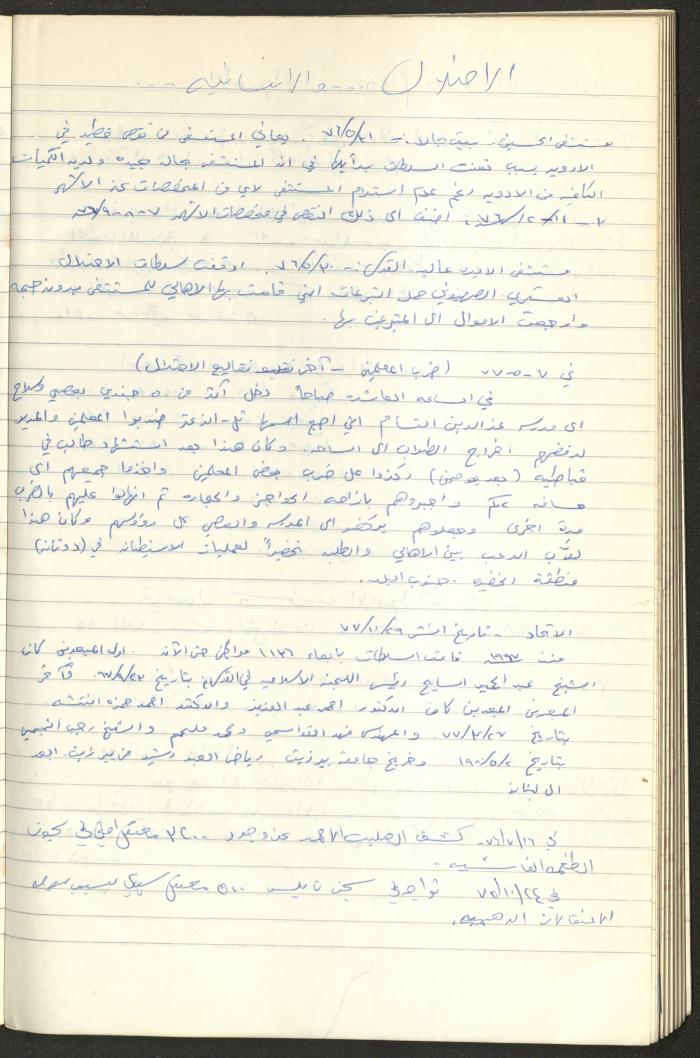 الاحتلال ... والانسانيه ...
مستشفى الحسين - بيت جالا :- ٧٦/٥/٢١ . يعاني المستشفى من نقص خطير في
الادويه بسبب تعنت السلطات بدأيها في انه المستشفى بحاله جيده ولديه الكميات
الكافيه من الادويه رغم عدم استلام المستشفى لاي من المخصصات عن الاشهر
اضف الى ذلك النقص في مخصصات الاشهر ٧-٨-٩/٧٦
مستشفى الاميره عاليه القدس :- ٧٦/٥/٣٠ . اوقفت سلطات الاحتلال
العسكري الصهيوني حمل التبرعات التي قامت بها الاهالي للمستشفى بدون حجه
وارجعت الاموال الى المتبرعين بها .
في ٧-٥-٧٧ (ضرب المعلمين - آخر تقاليع الاحتلال)
في الساعه العاشره صباحاً دخل أكثر من ٥٠ جندي بعصي وسلاح
الى مدرسه عز الدين القسام التي اصبح اسمها تل-الزعتر ضربوا المعلمين والمدير
لرفضهم اخراج الطلاب الى الساحه. وكان هذا بعد استشهاد طالب في
قباطيه (بعد يومين) ركزوا على ضرب بعض المعلمين واخذوا جميعهم الى
مسافه ٢كم واجبروهم بازاحه الحواجز والحجاره ثم انهالوا عليهم بالضرب
مرة اخرى وجعلوهم يركضوا الى المدرسه والعصي على رؤوسهم وكان هذا
لبث الرعب بين الاهالي والطلبه تحضيراً لعمليات الاستيطان في (دوتان)
منطقة الحفيره . جنوب البلد .
الاتحاد - تاريخ النشر ٧٧/١١/٢٩
منذ ١٩٦٧ قامت السلطات بابعاء ١١٣٦ مواطن حتى الآن . اول المبعدين كان
الشيخ عبد الحميد السايح رئيس اللجنة الاسلاميه في القدس بتاريخ ٦٧/٩/٢٣. وآخر
المبعدين المبعدين كان الدكتور احمد عبد العزيز والدكتور احمد حمزه النتشه
بتاريخ ٧٦/٣/٢٧ والمهندس فهد القواسمي ومحمد ملحم والشيخ رجب التميمي
بتاريخ ١٩٨٠/٥/٢ وخريج جامعة بيرزيت رياض العبد رشيد من بيرزيت. ابعد
الى لبنان
في ٧٦/٧/١٦. كشف الصليب الاحمر عن وجود ٣٢٠٠ معتقل امني في سجون
الطغمه الفاشيه .
في ٧٥/١٠/٢٤ تواجد في سجن نابلس ٥٠٠ معتقل بسبب
الاعتقالات الرهيبه.